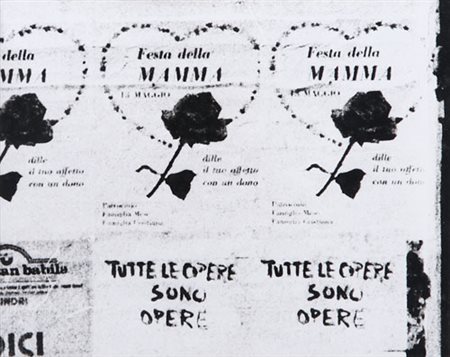 Festa della
MAMMA
dille
il tuo affetto
con un dono
Festa della
MAMMA
15 MAGGIO
dille
il tuo affetto
con un dono
Patrocinio
Famiglia Mese
Famiglia Cristiana
Festa della
MAMMA
15 MAGGIO
dille
il tuo affetto
con un dono
Patrocinio
Famiglia Mese
Famiglia Cristiana
an babila
DICI
TUTTE LE OPERE
SONO
OPERE
TUTTE LE OPERE
SONO
OPERE